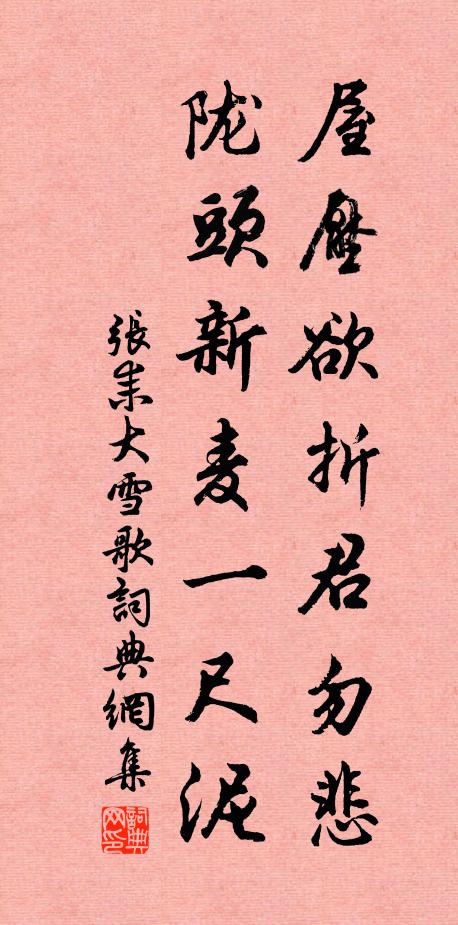 屋壓欲折君勿悲
陇頭新麦一尺泥
張耒大雪歌詞典網集
詞典
网印